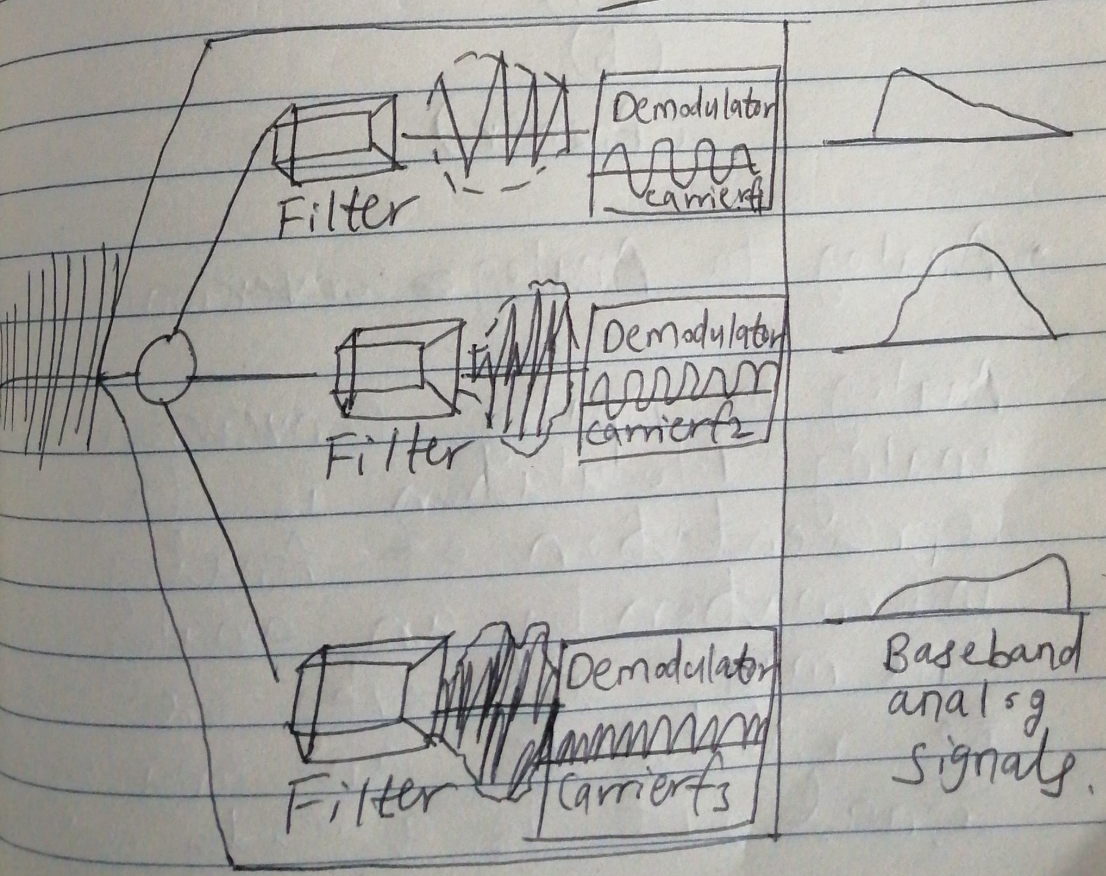 Demodulator
carrierf1
Filter
Demodulator
carrierf2
Filter
Demodulator
carrierf3
Filter
Baseband
analog
signals.